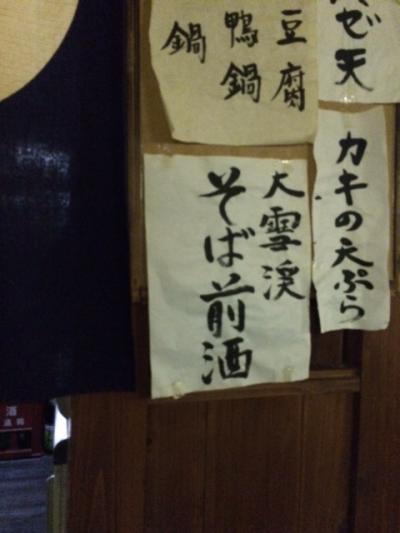 ゼ天
豆腐
鴨鍋
鍋
カキの天ぷら
大雪渓
そば前酒
酒